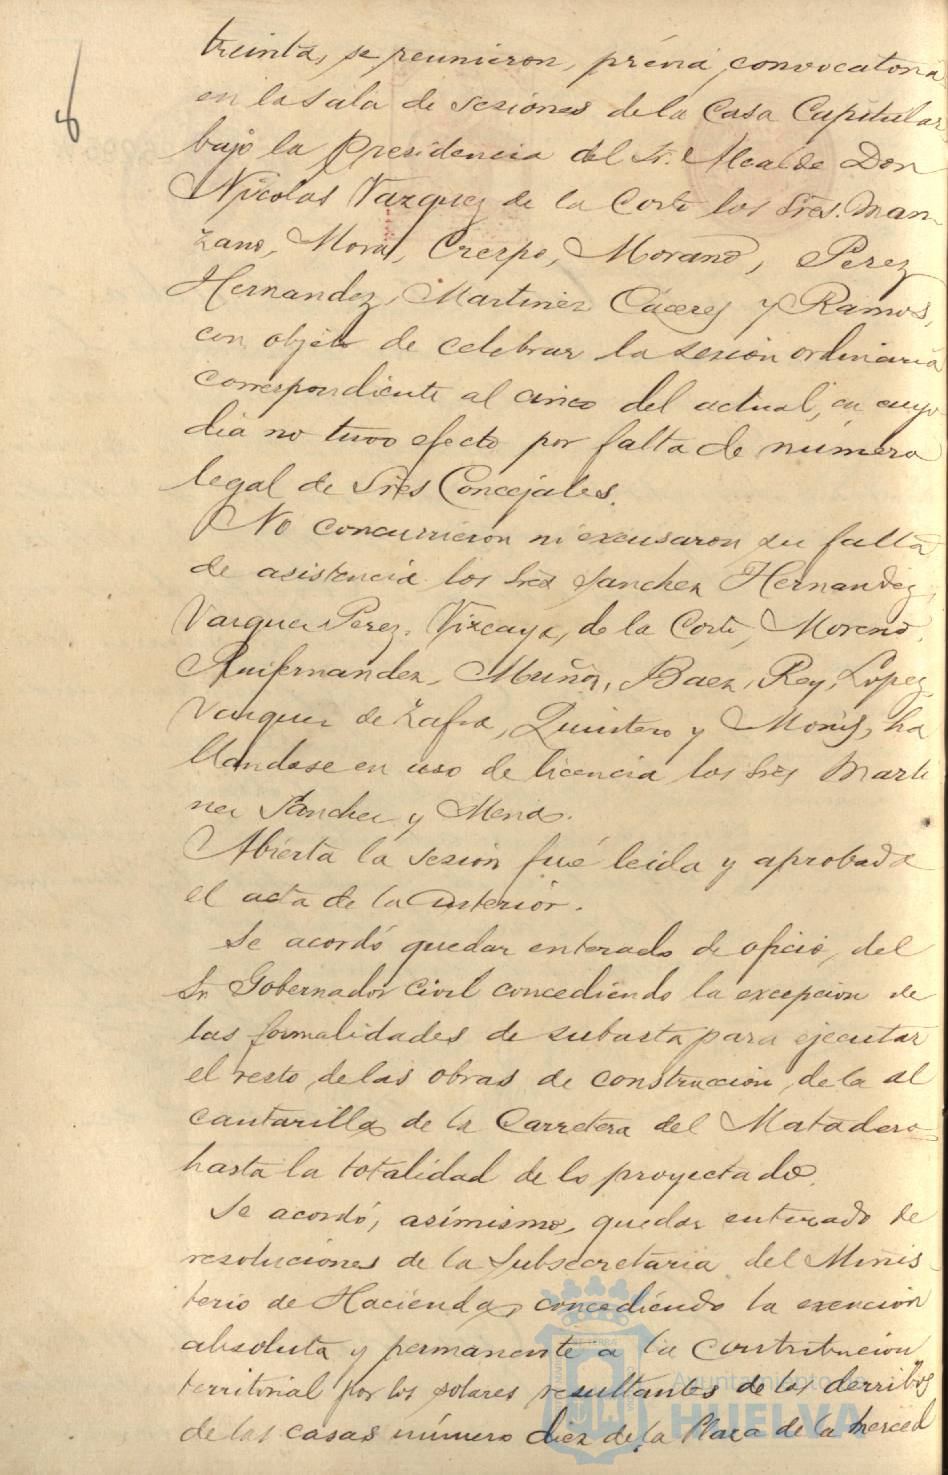 8
treinta, se reunieron, prévia convocatoria
en la Sala de Sesiones de la Casa Capitular
bajo la Presidencia del Sr. Alcalde Don
Nicolas Vazquez de la Corte los Sres. Man-
zano, Mora, Crespo, Morano, Perez
Hernandez, Martinez Cáceres y Ramos,
con objeto de celebrar la sesión ordinaria
correspondiente al cinco del actual, en cuyo
dia no tuvo efecto por falta de número
legal de Sres Concejales.
No concurrieron ni excusaron su falta
de asistencia los Sres Sanchez Hernandez,
Vazquez Perez, Vizcaya, de la Corte, Moreno,
Ruifernandez, Muñoz, Baez, Rey, Lopez,
Vazquez de Zafra, Quintero y Monís, ha
llandose en uso de licencia los Sres Marti
nez Sanchez y Mena.
Abierta la sesión fué leida y aprobada
el acta de la anterior.
Se acordó quedar enterado de oficio, del
Sr. Gobernador Civil concediendo la excepcion de
las formalidades de subasta para ejecutar
el resto de las obras de construccion de la al
cantarilla de la Carretera del Matadero
hasta la totalidad de lo proyectado.
Se acordó, asímismo, quedar enterado de
resoluciones de la Subsecretaria del Minis-
terio de Hacienda, concediendo la exención
absoluta y permanente a la contribucion
territorial por los solares resultantes de los derribos
de las casas número diez de la Plaza de la Merced
Ayuntamiento de
HUELVA